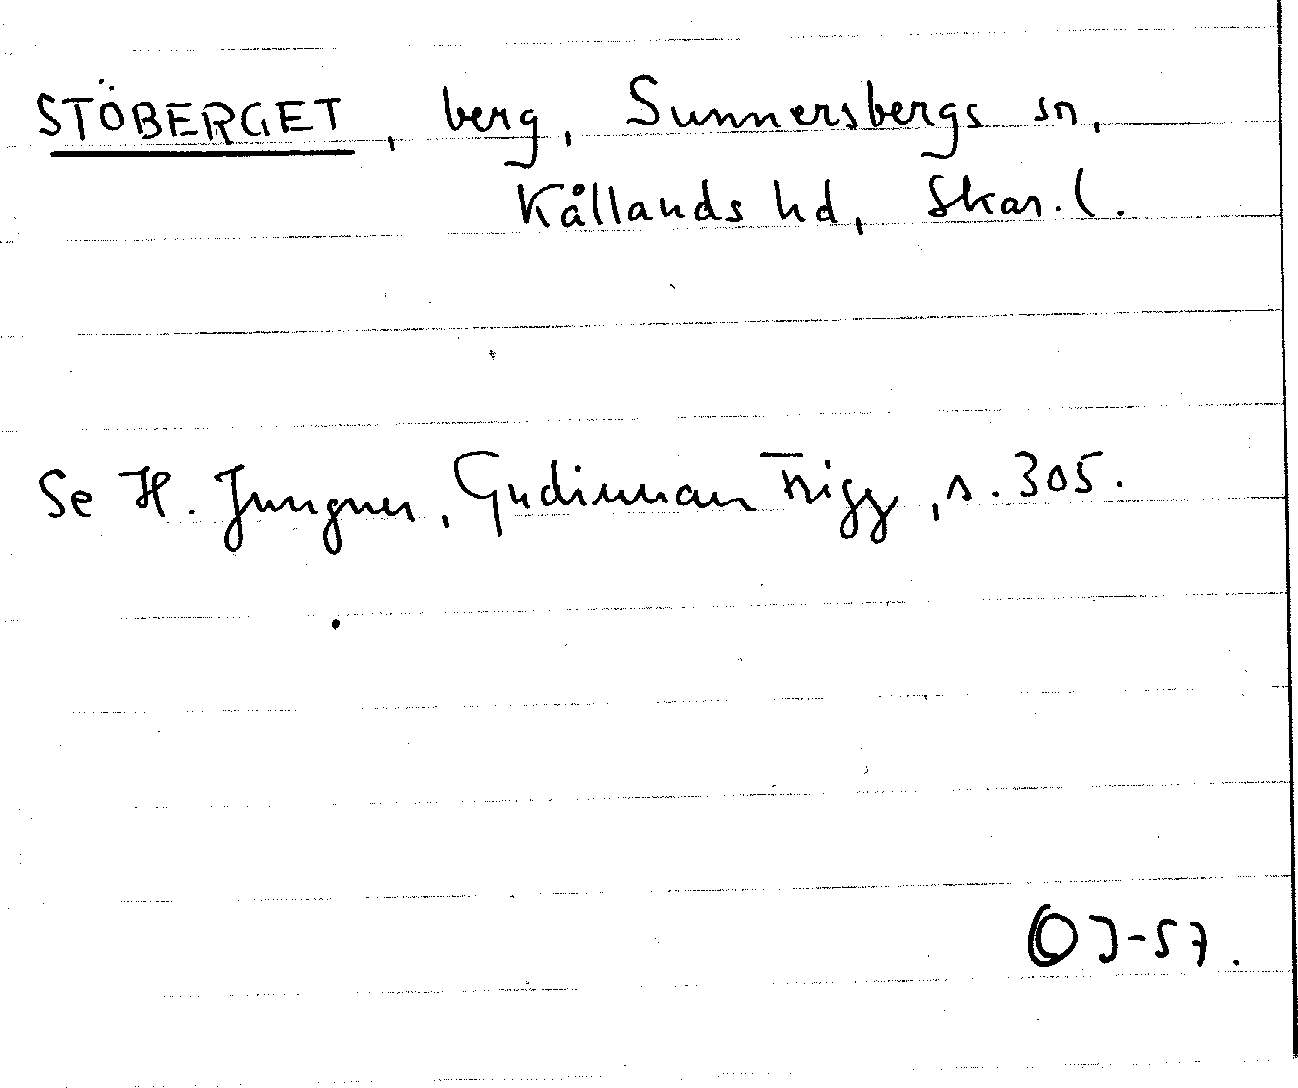 STÖBERGET, berg, Sunnersbergs sn,
Kållands hd, Skar. l.
Se H. Jungner, Gudinnan Frigg, s. 305.
OJ-57.